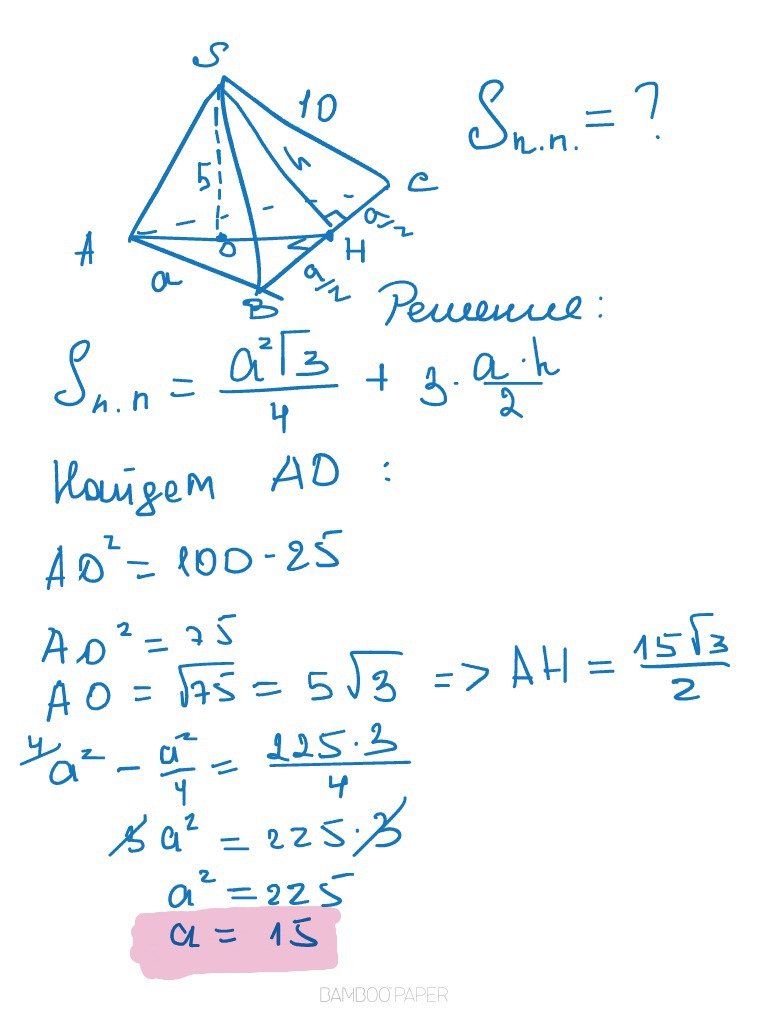 S
10
Sп.п. = ?
5
h
C
a/2
A
O
H
a
a/2
B
Решение:
Sп.п = a²√3/4 + 3·a·h/2
Найдем AO :
AO² = 100 - 25
AO² = 75
AO = √75 = 5√3 => AH = 15√3/2
4/a² - a²/4 = 225·3/4
3a² = 225·3
a² = 225
a = 15
BAMBOO PAPER